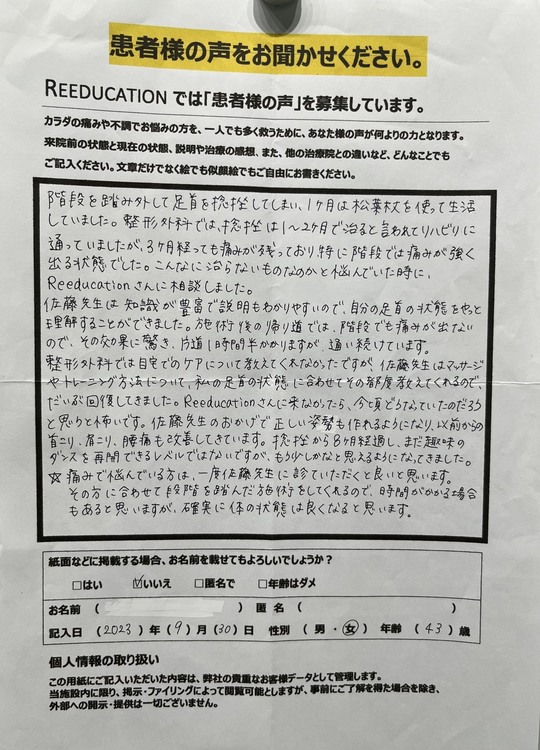 患者様の声をお聞かせください。
REEDUCATION では「患者様の声」を募集しています。
カラダの痛みや不調でお悩みの方を、一人でも多く救うために、あなた様の声が何よりの力となります。
来院前の状態と現在の状態、説明や治療の感想、また、他の治療院との違いなど、どんなことでも
ご記入ください。文章だけでなく絵でも似顔絵でもご自由にお書きください。
階段を踏み外して足首を捻挫してしまい、1ヶ月は松葉杖を使って生活
していました。整形外科では、捻挫は1〜2ヶ月で治ると言われてリハビリに
通っていましたが、3ヶ月経っても痛みが残っており、特に階段では痛みが強く
出る状態でした。こんなに治らないものなのかと悩んでいた時に、
Reeducationさんに相談しました。
佐藤先生は知識が豊富で説明もわかりやすいので、自分の足首の状態をやっと
理解することができました。施術後の帰り道では、階段でも痛みが出ない
ので、その効果に驚き、片道1時間半かかりますが、通い続けています。
整形外科では自宅でのケアについて教えてくれなかったですが、佐藤先生はマッサージ
やトレーニング方法について、私の足首の状態に合わせてその都度教えてくれるので、
だいぶ回復してきました。Reeducationさんに来なかったら、今頃どうなっていたのだろう
と思うと怖いです。佐藤先生のおかげで正しい姿勢も作れるようになり、以前からの
首こり、肩こり、腰痛も改善してきています。捻挫から8ヶ月経過し、まだ趣味の
ダンスを再開できるレベルではないですが、もう少しかなと思えるようになってきました。
☆ 痛みで悩んでいる方は、一度佐藤先生に診ていただくと良いと思います。
その方に合わせて段階を踏んだ施術をしてくれるので、時間がかかる場合
もあると思いますが、確実に体の状態は良くなると思います。
紙面などに掲載する場合、お名前を載せてもよろしいでしょうか?
□はい ☑いいえ □匿名で □年齢はダメ
お名前 ( ) 匿名 ( )
記入日 (2023) 年 (9) 月 (30) 日 性別 (男・女) 年齢 (43) 歳
個人情報の取り扱い
この用紙にご記入いただいた内容は、弊社の貴重なお客様データとして管理します。
当施設内に限り、掲示・ファイリングによって閲覧可能としますが、事前にご了解を得た場合を除き、
外部への開示・提供は一切ございません。